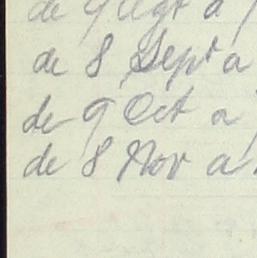 de 9 Agt a
de 8 Sept a
de 9 Oct a
de 8 Nov a